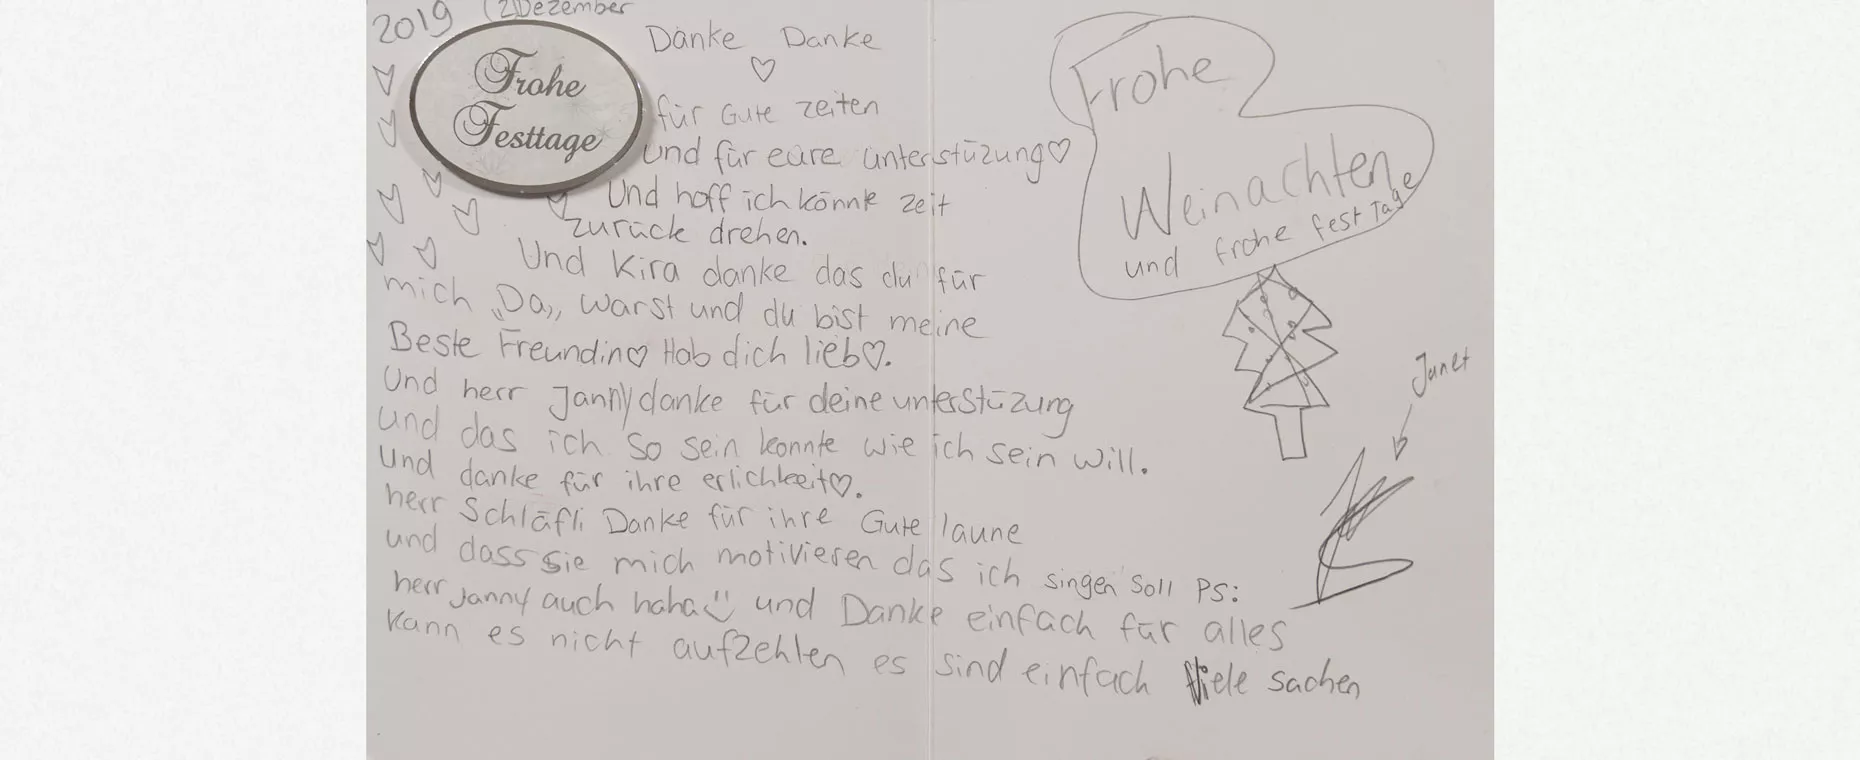 2019 12 Dezember
Frohe
Festtage
Danke Danke
♡
für Gute zeiten
und für eure unterstüzung♡
Und hoff ich könnte zeit
zurück drehen.
Und Kira danke das du für
mich „Da„ warst und du bist meine
Beste Freundin♡ Hab dich lieb♡.
Und herr Janny danke für deine unterstüzung
und das ich so sein konnte wie ich sein will.
Und danke für ihre erlichkeit♡.
herr Schläfli Danke für ihre Gute laune
und dass sie mich motivieren das ich singen soll PS:
herr Janny auch haha☺ und Danke einfach für alles
kann es nicht aufzehlen es sind einfach Viele sachen
Frohe
Weinachten
und frohe fest Tage
Janet